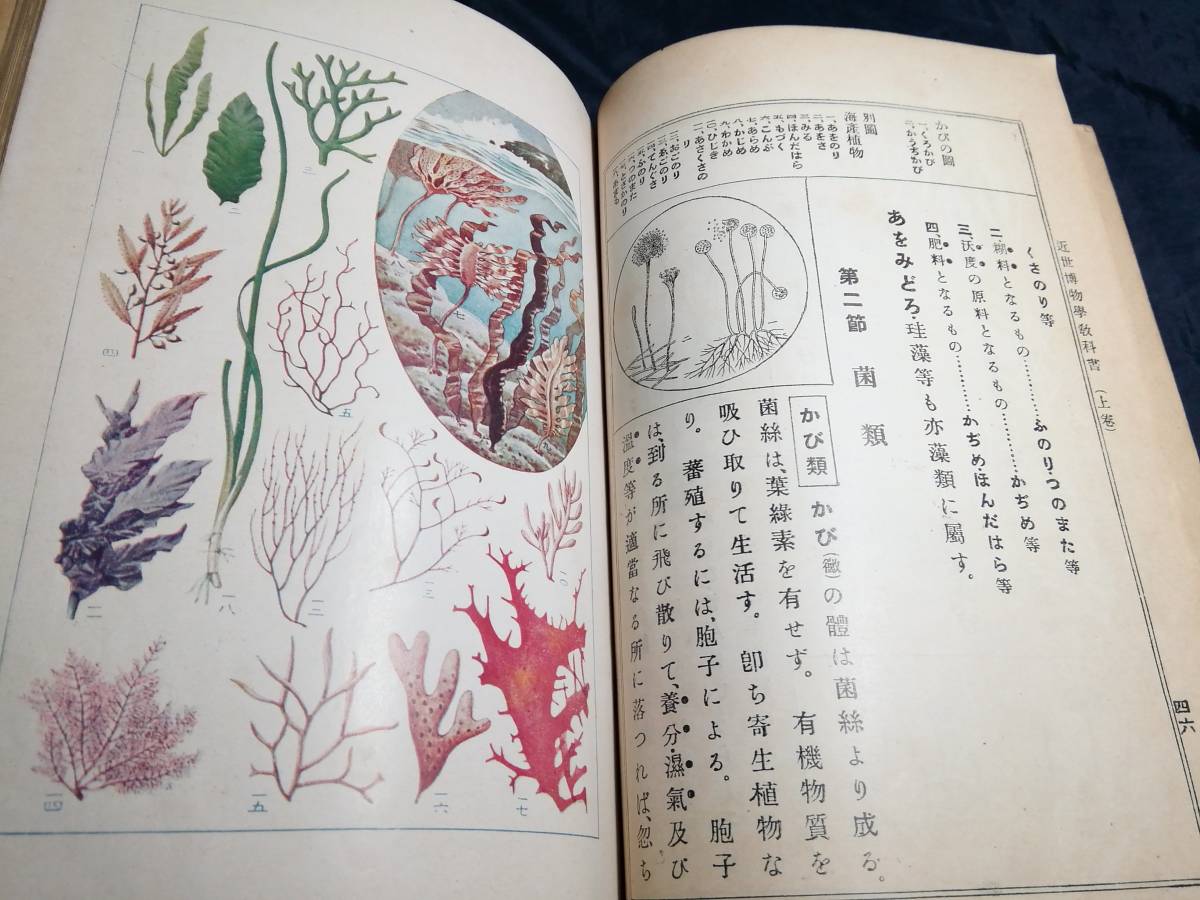 近世博物學敎科書(上卷)
四六
くさのり等
二、糊料となるもの…………ふのり・つのまた等
三、沃度の原料となるもの…………かぢめ等
四、肥料となるもの…………かぢめ・ほんだはら等
あをみどろ・珪藻等も亦藻類に屬す。
第二節 菌類
かび類 かび(黴)の體は菌絲より成る。
菌絲は、葉綠素を有せず。有機物質を
吸ひ取りて生活す。卽ち寄生植物な
り。蕃殖するには、胞子による。胞子
は、到る所に飛び散りて、養分・濕氣及び
溫度等が適當なる所に落つれば、忽ち
かびの圖
一、くろかび
二、かうぢかび
別圖
海產植物
一、あをのり
二、あをさ
三、みる
四、ほんだはら
五、もづく
六、こんぶ
七、あらめ
八、かじめ
九、わかめ
一〇、ひじき
一一、あさくさの
り
一二、おごのり
一三、
一四、てんぐさ
一五、ふのり
一六、つのまた
一七、とさかのり
一八、あまも
三
二
四
五
七
一八
一二
一三
一〇
一四
一五
一六
一七